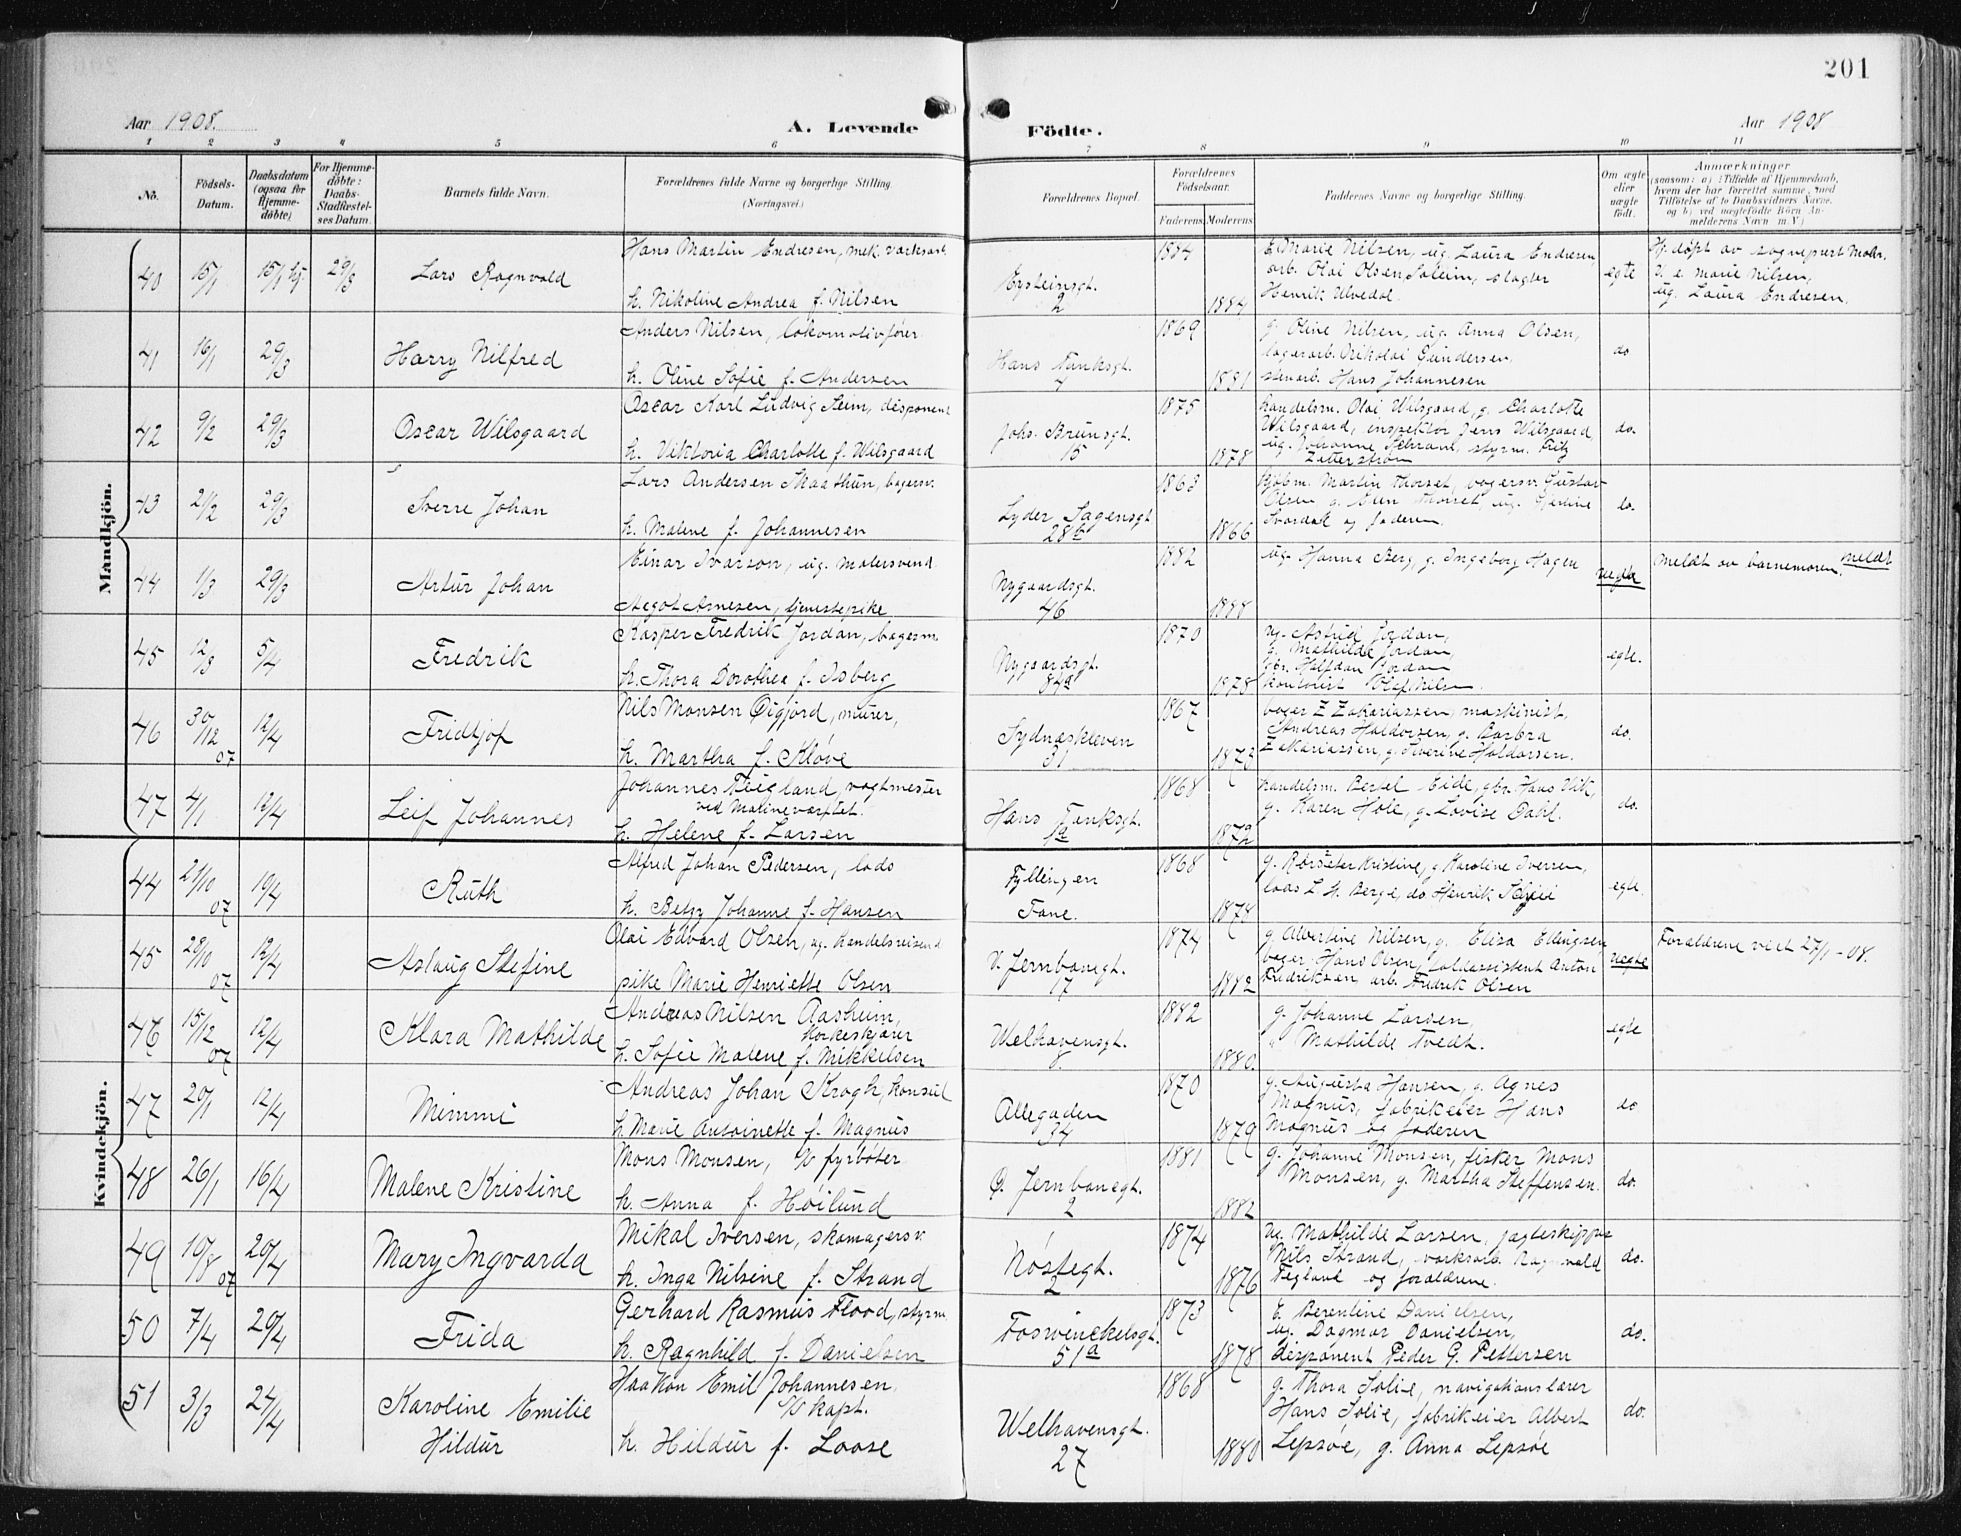 201
Aar 1908.
A. Levende
Födte.
Aar 1908
1 2 3 4 5 6 7 8 9 10 11
No.
Födsels-Datum.
Daabsdatum (ogsaa for Hjemme-döbte)
For Hjemme-döbte: Daabs-Stadfæstel-ses Datum.
Barnets fulde Navn.
Forældrenes fulde Navne og borgerlige Stilling.
(Næringsvei.)
Forældrenes Bopæl.
Forældrenes Födselsaar.
Faderens Moderens
Faddernes Navne og borgerlige Stilling.
Om ægte eller uægte födt.
Anmærkninger
(saasom: a) i Tilfælde af Hjemmedaab,
hvem der har forrettet samme, med
Tilföielse af to Daabsvidners Navne.
og b) ved uægtefödte Börn An-
melderens Navn m. V.)
Mandkjön.
40 15/1 15/1 hj. 29/3 Lars Ragnvald
Hans Martin Endresen, mek. værksarb.
h. Nikoline Andrea f. Nilsen
Eysteinsgt.
2
1884
1884
E. Marie Nilsen, ug. Laura Endresen,
arb. Olai Olsen Soleim, slagter
Henrik Ulvedal.
egte
Hj. døpt av sogneprest Mohr.
V. e. Marie Nilsen,
ug. Laura Endresen.
41 16/1 29/3 Harry Nilfred
Anders Nilsen, lokomotivfører
h. Oline Sofie f. Andersen
Hans Tanksgt.
7
1869
1881
g. Oline Nilsen, ug. Anna Olsen,
lagerarb. Nikolai Gundersen,
stenarb. Hans Johannesen
do
42 9/2 29/3 Oscar Wilsgaard
Oscar Karl Ludvig Seim, disponent
h. Viktoria Charlotte f. Wilsgaard
Johs. Brunsgt.
15
1875
1878
handelsm. Olai Wilsgaard, g. Charlotte
Wilsgaard, inspektør Jens Wilsgaard,
ug. Johanne Schram, styrm. Fritz
Zetterstrøm
do.
43 2/2 29/3 Sverre Johan
Lars Andersen Maathun, bagersv.
h. Malene f. Johannesen
Lyder Sagensgt
28b
1863
1866
Martin Thorset, bagersv. Gustav
Olsen g. Thorset, ug.
Svardal og faderen.
do.
44 1/3 29/3 Artur Johan
Einar Ivarson, ug. malersvend.
Aagot Arnesen, tjenestepike
Nygaardsgt.
46
1882
1888
ug. Hanna Berg, g. Ingeborg Hagen
uegte
Meldt av barnemoren. meldt
45 12/3 5/4 Fredrik
Kasper Fredrik Jordan, bagerm.
h. Thora Dorothea f. Isberg
Nygaardsgt.
84a
1870
1878
ug. Astrid Jordan,
g. Mathilde Jordan,
gbr. Halfdan Jordan
kontorist Olaf Nilsen.
egte.
46 30/12 07 12/4 Fridtjof
Nils Monsen Øigjord, murer,
h. Martha f. Kløve
Sydnæskleven
31
1867
1873
bager Z Zakariassen, maskinist
Andreas Haldorsen, g. Barbra
Zakariassen, g. Severine Haldorsen.
do.
47 4/1 12/4 Leif Johannes
Johannes Teigland, vagtmester
ved Marineværftet.
h. Helene f. Larsen
Hans Tanksgt.
1a
1868
1872
handelsm. Bertel Eide, gbr. Hans Vik,
g. Karen Hole, g. Lovise Dahl.
do.
Kvindekjön.
44 21/10 07 10/4 Ruth
Alfred Johan Pedersen, lods
h. Betzy Johanne f. Hansen
Fyllingen
Fane.
1868
1878
g. Kristine, g. Karoline Iversen,
lods L. H. Berge, do. Henrik
egte.
45 28/10 07 12/4 Aslaug Stefine
Olai Edvard Olsen, ug. handelsreisend
pike Marie Henriette Olsen
V. Jernbanegt.
17
1874
1882
g. Albertine Nilsen, g. Eliza Ellingsen,
bager Hans Olsen, toldassistent Anton
Fredriksen arb. Fredrik Olsen
uegte
Forældrene viet 27/1 - 08.
46 15/12 07 12/4 Klara Mathilde
Andreas Nilsen Aasheim,
korkeskjærer
h. Sofie Malene f. Mikkelsen
Welhavensgt.
8
1882
1880.
g. Johanne Larsen,
" Mathilde Tvedt.
egte
47 20/1 12/4 Mimmi
Andreas Johan Krogh, konsul
h. Marie Antoinette f. Magnus
Allegaden
34
1870
1879
g. Augusta Hansen, g. Agnes
Magnus, fabrikeier Hans
Magnus og faderen
do.
48 26/1 16/4 Malene Kristine
Mons Monsen, fyrbøter
h. Anna f. Høilund
Ø. Jernbanegt.
2
1881
1882
g. Johanne Monsen, fisker Mons
Monsen, g. Martha Steffensen.
do.
49 10/8 07 20/4 Mary Ingvarda
Mikal Iversen, skomagersv.
h. Inga Nilsine f. Strand
Nøstegt.
2
1874
1876
ug. Mathilde Larsen, jagteskipper
Nils Strand, værksarb. Ragnvald
Tegland og forældrene.
do.
50 7/4 20/4 Frida
Gerhard Rasmus Flood, styrm.
h. Ragnhild f. Danielsen
Foswinckelsgt.
51a
1873
1878
E. Berentine Danielsen,
ug. Dagmar Danielsen,
disponent Peder G. Pettersen
do.
51 3/3 24/4 Karoline Emilie
Hildur
Haakon Emil Johannesen
kapt.
h. Hildur f. Loose
Welhavensgt.
27
1868
1880
g. Thora Solie, navigationslærer
Hans Solie, fabrikeier Albert
Lepsøe, g. Anna Lepsøe
do.